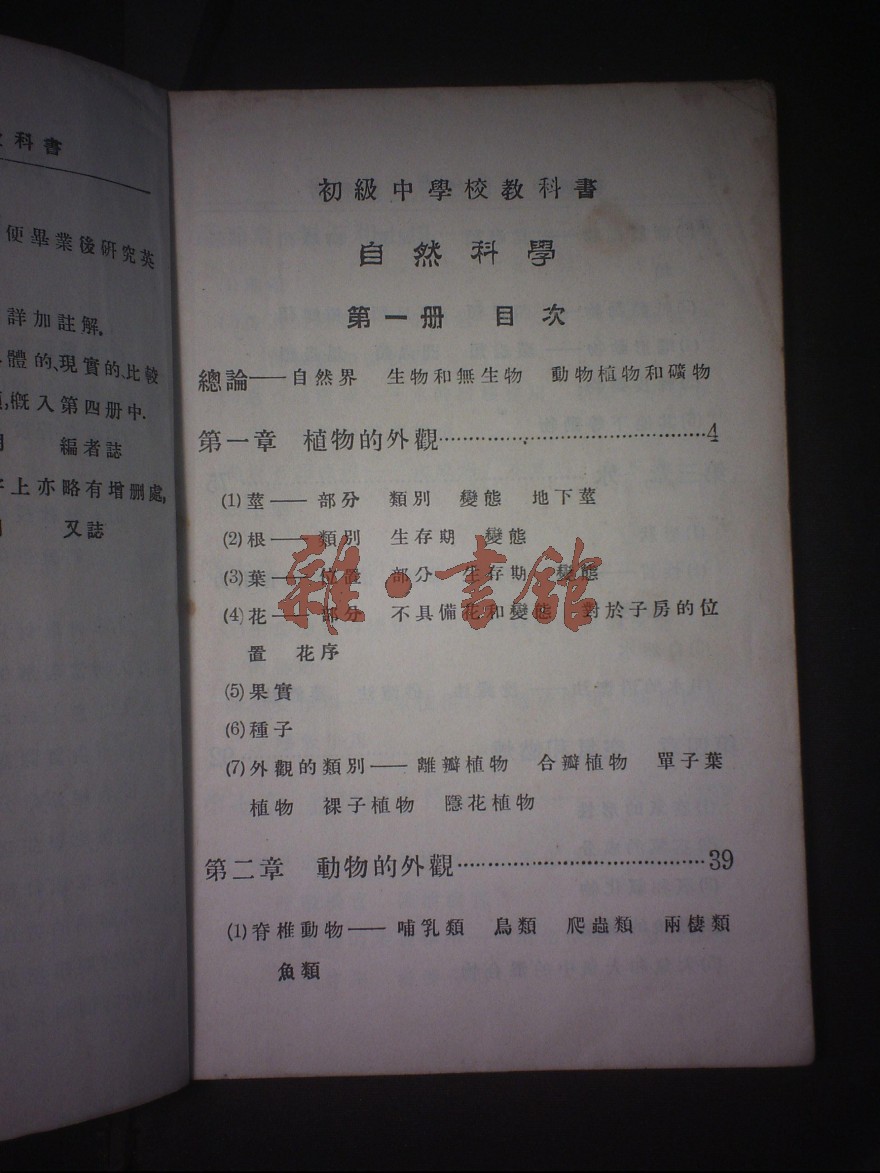 科書
使畢業後研究英
詳加註解.
體的、現實的、比較
概入第四册中.
編者誌
上亦略有增删處,
又誌
初級中學校教科書
自然科學
第一册 目次
總論——自然界 生物和無生物 動物植物和礦物
第一章 植物的外觀……………………………4
(1)莖—— 部分 類別 變態 地下莖
(2)根—— 類別 生存期 變態
(3)葉—— 位置 部分 生存期 變態
(4)花—— 部分 不具備花和變態 對於子房的位
置 花序
(5)果實
(6)種子
(7)外觀的類別—— 離瓣植物 合瓣植物 單子葉
植物 裸子植物 隱花植物
第二章 動物的外觀……………………………39
(1)脊椎動物—— 哺乳類 鳥類 爬蟲類 兩棲類
魚類
雜·書館